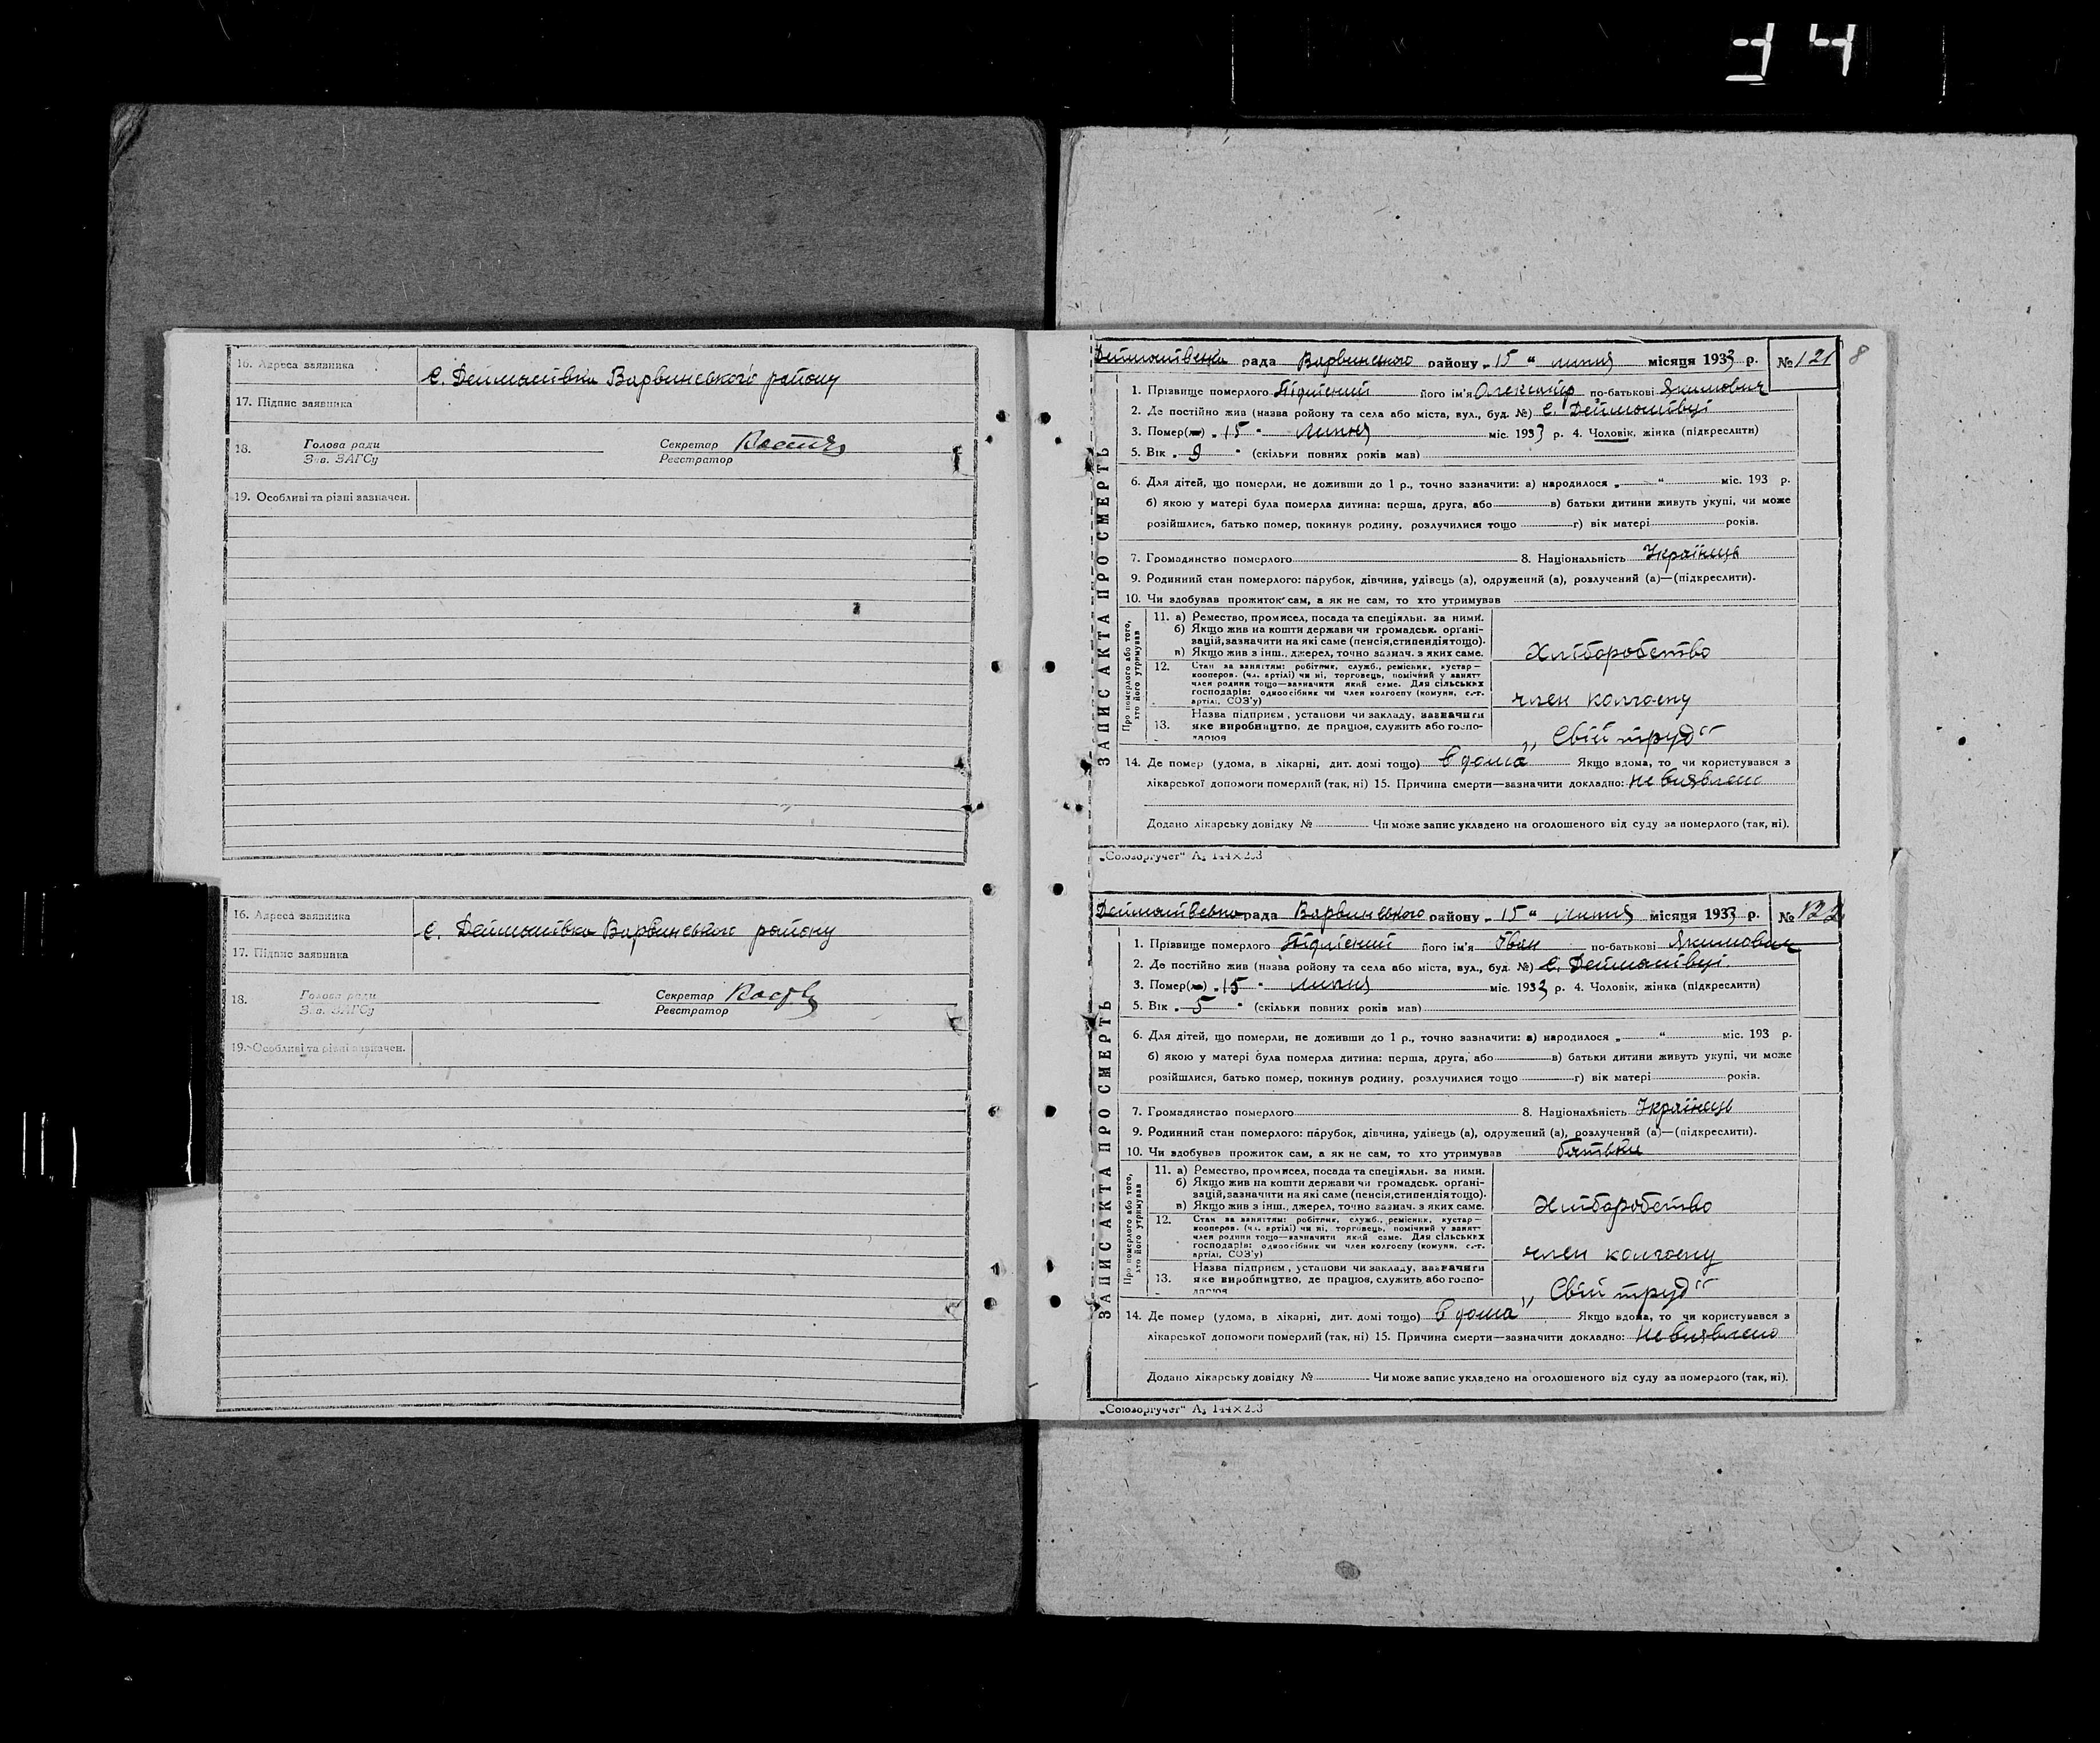 34
16. Адреса заявника
с. Дейманівка Варвинського району
17. Підпис заявника
18. Голова ради
Зав. ЗАГСу
Секретар
Реєстратор
19. Особливі та різні зазначен.
16. Адреса заявника
с. Дейманівка Варвинського району
17. Підпис заявника
18. Голова ради
Зав. ЗАГСу
Секретар
Реєстратор
19. Особливі та різні зазначен.
8
ЗАПИС АКТА ПРО СМЕРТЬ
Дейманівська рада Варвинського району „ 15 " липня місяця 1933 р. № 121
1. Прізвище померлого Підлісний його ім'я Олександр по-батькові Якимович
2. Де постійно жив (назва району та села або міста, вул., буд. №) с. Дейманівці
3. Помер(ла) „ 15 " липня міс. 1933 р. 4. Чоловік, жінка (підкреслити)
5. Вік „ 9 " (скільки повних років мав)
6. Для дітей, що померли, не доживши до 1 р., точно зазначити: а) народилося „ " міс. 193 р.
б) якою у матері була померла дитина: перша, друга, або в) батьки дитини живуть укупі, чи може
розійшлися, батько помер, покинув родину, розлучилися тощо г) вік матері років.
7. Громадянство померлого 8. Національність Українець
9. Родинний стан померлого: парубок, дівчина, удівець (а), одружений (а), розлучений (а)—(підкреслити).
10. Чи здобував прожиток сам, а як не сам, то хто утримував
Про померлого або того, хто його утримував
11. а) Ремество, промисел, посада та спеціяльн. за ними.
б) Якщо жив на кошти держави чи громадськ. органі-
зацій, зазначити на які саме (пенсія, стипендія тощо).
в) Якщо жив з інш., джерел, точно зазнач. з яких саме.
Хліборобство
12. Стан за заняттям: робітник, служб., ремісник, кустар—
кооперов. (чл. артілі) чи ні, торговець, помічний у занят—
член родини тощо—зазначити який саме. Для сільських
господарів: одноосібник чи член колгоспу (комуни, с.-г.
артілі, СОЗ'у)
член колгоспу
13. Назва підприєм., установи чи закладу, зазначити
яке виробництво, де працює, служить або госпо-
„ Свій труд "
14. Де помер (удома, в лікарні, дит. домі тощо) вдома Якщо вдома, то чи користувався з
лікарської допомоги померлий (так, ні) 15. Причина смерти—зазначити докладно: не виявлено
Додано лікарську довідку № Чи може запис укладено на оголошеного від суду за померлого (так, ні).
„Союзоргучет" А₅ 144×203
ЗАПИС АКТА ПРО СМЕРТЬ
рада Варвинського району „ 15 " липня місяця 1933 р. № 122
1. Прізвище померлого Підлісний його ім'я Іван по-батькові Якимович
2. Де постійно жив (назва району та села або міста, вул., буд. №) с. Дейманівці
3. Помер(ла) „ 15 " липня міс. 1933 р. 4. Чоловік, жінка (підкреслити)
5. Вік „ 5 " (скільки повних років мав)
6. Для дітей, що померли, не доживши до 1 р., точно зазначити: а) народилося „ " міс. 193 р.
б) якою у матері була померла дитина: перша, друга, або в) батьки дитини живуть укупі, чи може
розійшлися, батько помер, покинув родину, розлучилися тощо г) вік матері років.
7. Громадянство померлого 8. Національність Українець
9. Родинний стан померлого: парубок, дівчина, удівець (а), одружений (а), розлучений (а)—(підкреслити).
10. Чи здобував прожиток сам, а як не сам, то хто утримував батьки
Про померлого або того, хто його утримував
11. а) Ремество, промисел, посада та спеціяльн. за ними.
б) Якщо жив на кошти держави чи громадськ. органі-
зацій, зазначити на які саме (пенсія, стипендія тощо).
в) Якщо жив з інш., джерел, точно зазнач. з яких саме.
Хліборобство
12. Стан за заняттям: робітник, служб., ремісник, кустар—
кооперов. (чл. артілі) чи ні, торговець, помічний у занят—
член родини тощо—зазначити який саме. Для сільських
господарів: одноосібник чи член колгоспу (комуни, с.-г.
артілі, СОЗ'у)
член колгоспу
13. Назва підприєм., установи чи закладу, зазначити
яке виробництво, де працює, служить або госпо-
„ Свій труд "
14. Де помер (удома, в лікарні, дит. домі тощо) вдома Якщо вдома, то чи користувався з
лікарської допомоги померлий (так, ні) 15. Причина смерти—зазначити докладно: не виявлено
Додано лікарську довідку № Чи може запис укладено на оголошеного від суду за померлого (так, ні).
„Союзоргучет" А₅ 144×203